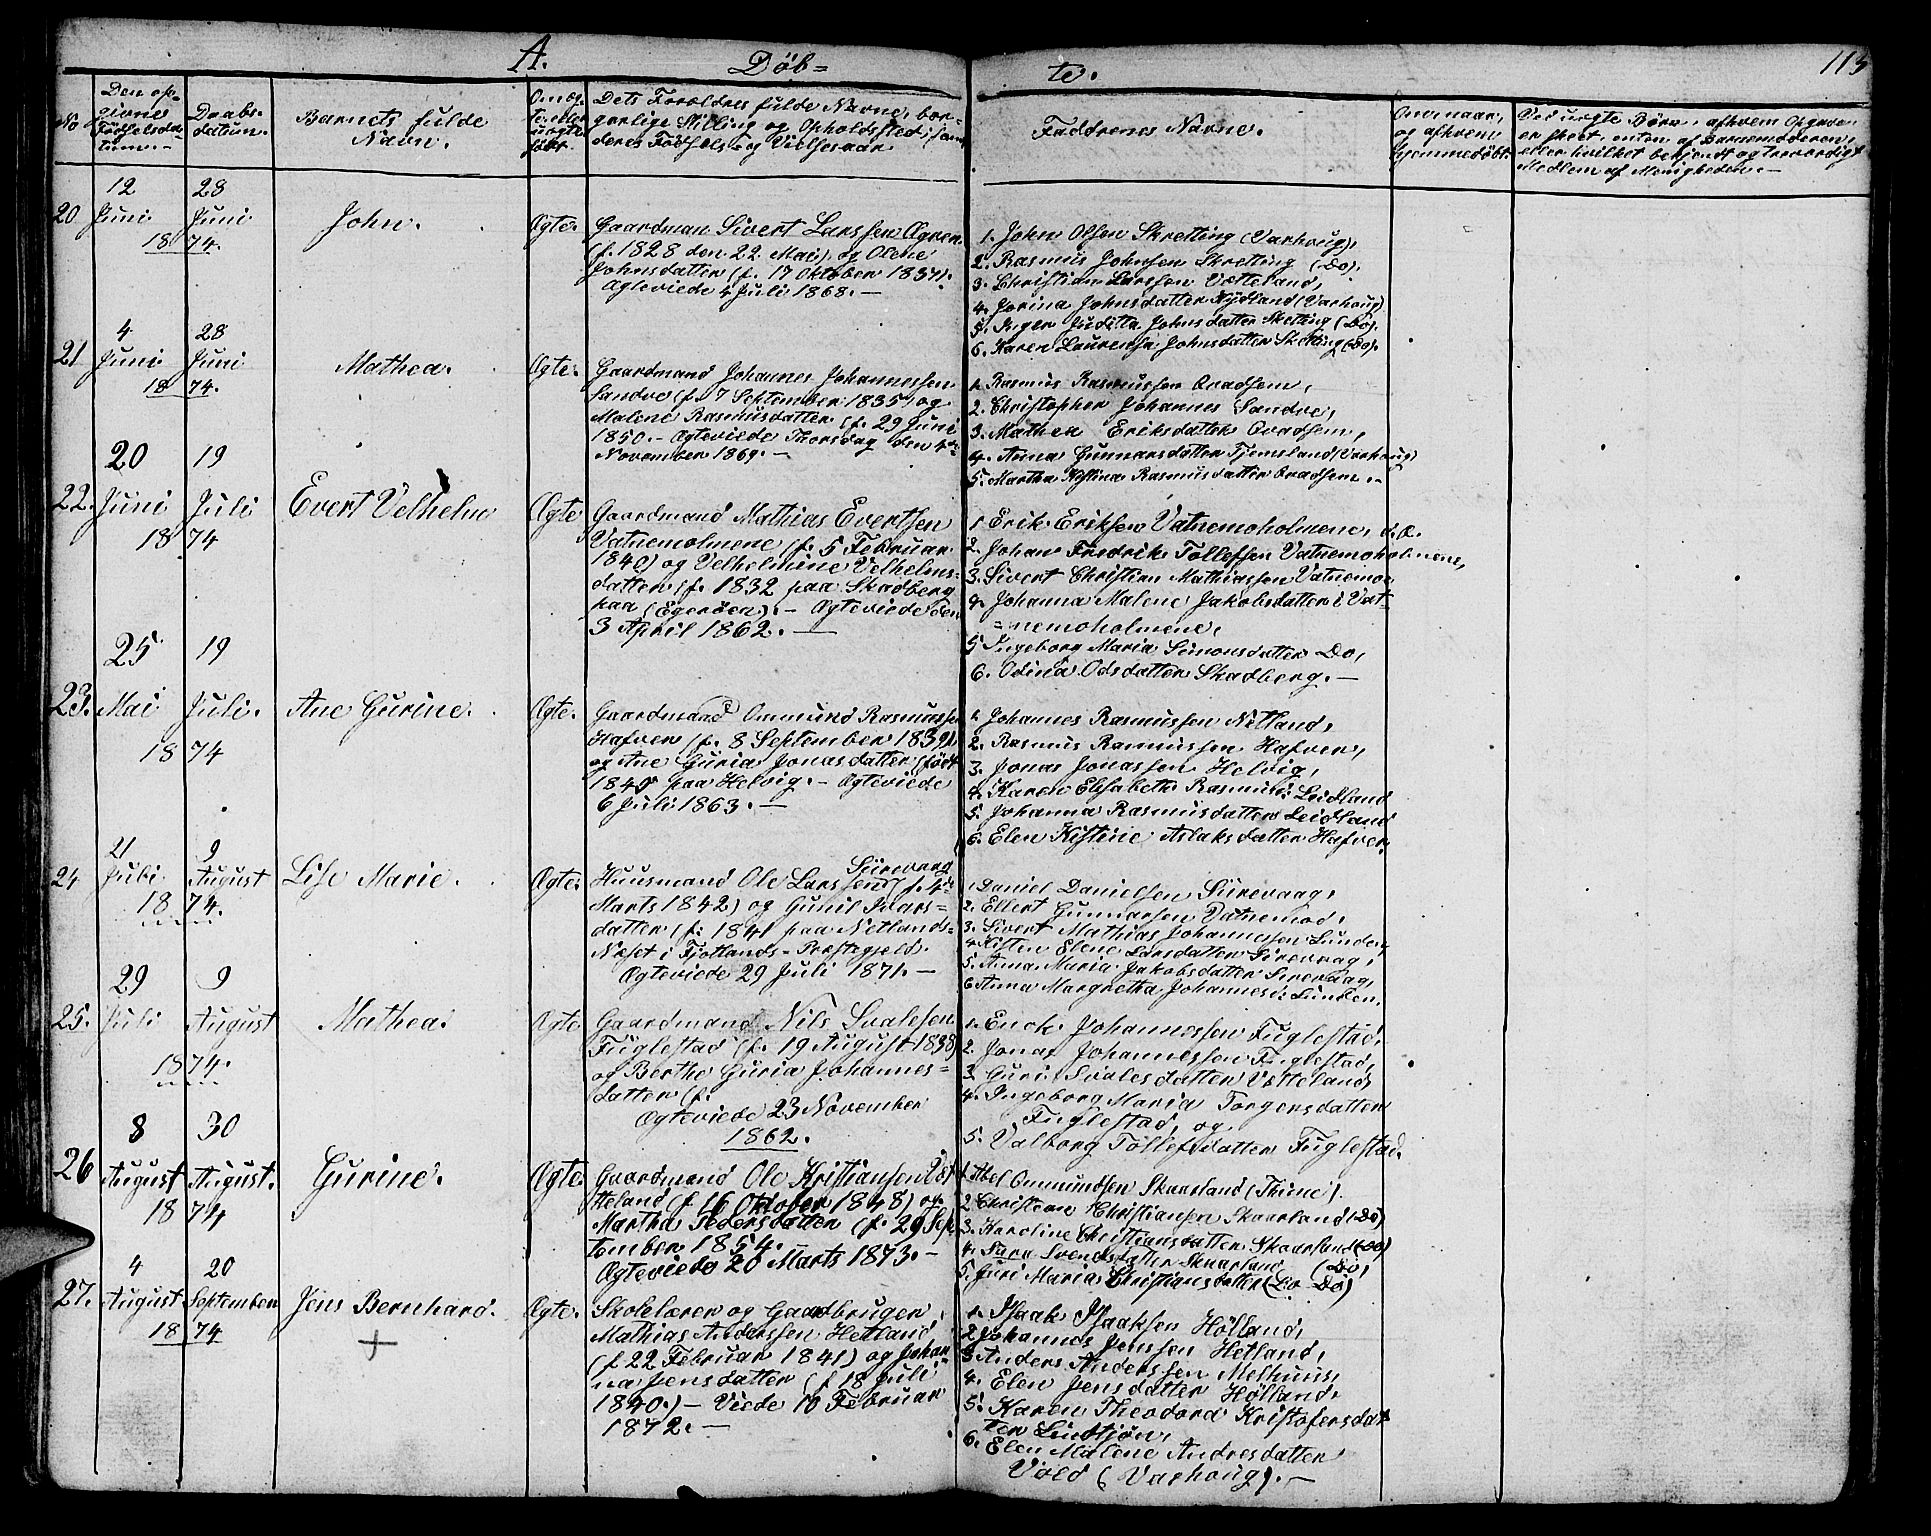 A. Döb= te. 113
No
Den op-
givne
Födselsda-
tum.-
Daabs-
datum.
Barnets fulde
Navn.
Om æg-
te eller
uægte
födt.
Dets Foreldres fulde Navne, bor-
gerlige Stilling og Opholdssted; sam
deres Födsels- og Vielsesaar.
Faddrenes Navne.
Om, naar,
og af hvem
hjemmedöbt.
Ved uægte Börn, af hvem Opgaven
er skeet, enten af Barnemoderen,
eller hvilket bekjendt og troværdigt
Medlem af Menigheden.-
20
12
Juni
28
Juni
1874.
John.
Ægte.
Gaardman Sivert Larssen Ogren
(f. 1828 den 22 Mai) og Olene
Johnsdatter (f. 17 Oktober 1837).
Ægteviede 4 Juli 1868.-
1. John Olsen Skretting (Varhoug),
2. Rasmus Johnsen Skretting (Do),
3. Christian Larssen Vetteland,
4. Jorina Johnsdatter Nydland (Varhoug)
5. Inger Juditta Johnsdatter Sketting (Do).
6. Karen Laurensa Johnsdatter Sketting (Do).
21
4
Juni
28
Juni
1874.
Mathea.
Ægte.
Gaardmand Johannes Johannessen
Sandve (f. 7 September 1835) og
Malene Rasmusdatter (f. 29 Juni
1850.- Ægteviede Thorsdag den 4de
November 1869.-
1. Rasmus Rasmussen Qvadsem,
2. Christopher Johannes Sandve,
3. Mathea Eriksdatter Qvadsem,
4. Anna Gunnarsdatter Tjemsland (Varhoug)
5. Martha Kistina Rasmusdatter Qvadsem.-
22.
20
Juni
19
Juli
1874
Evert Velhelm
Ægte
Gaardmand Mathias Evertsen
Vatnemolmene (f. 5 Februar
1840) og Velhelmine Velhelms=
datter (f. 1832 paa Skadberg
paa (Egeröen).- Ægteviede den
3 April 1862.-
1 Erik Eriksen Vatnemoholmene, d. Æ.
2. Johan Fredrik Tollefsen Vatnemoholmene,
3. Sivert Christian Mathiassen Vatnemo
4. Johanna Malene Jakobsdatter i Vat-
=nemoholmene,
5 Ingeborg Maria Simonsdatter Do,
6. Odina Odsdatter Skadberg.-
23.
25
Mai
19
Juli.
1874
Ane Gurine.
Ægte.
Gaardmand Ommund Rasmussen
Hafver (f. 8 September 1839)
og Ane Guria Jonasdatter (födt
1840 paa Helvig.- Ægteviede
6 Juli 1863.-
1. Johannes Rasmussen Netland,
2. Rasmus Rasmussen Hafver,
3. Jonas Jonassen Helvig,
4. Karen Elisabeth Rasmusd: Leidland
5. Johanna Rasmusdatter Leidland
6. Elen Kistine Aslaksdatter Hafver.
24
21
Juli
9
August
1874.
Lise Marie.
Ægte.
Sirevaag
Huusmand Ole Larssen (f. 4de
Marts 1842) og Gunil Ivars=
datter (f. 1841 paa Netland=
Neset i Fjotlands=Præstegjeld.
Ægteviede 29 Juli 1871.-
1. Daniel Danielsen Sirevaag,
2. Ellert Gunnarsen Vatnemoe,
3. Sivert Mathias Johannessen Lunden,
4. Kisten Elene Larsdatter Sirevaag,
5. Anna Maria Jakobsdatter Sirevaag,
6 Anna Margretha Johannesd: Lunden.
25.
29
Juli
9
August
1874.
Mathea.
Ægte
Gaardmand Nils Svalesen
Fuglestad (f. 19 August 1838)
og Berthe Guria Johannes=
datter (f.
Ægteviede 23 November
1862.
1. Enok Johannessen Fuglestad,
2. Jonas Johannessen Fuglestad,
3 Guri Svalesdatter Vetteland
4. Ingeborg Maria Torgersdatter
Fuglestad, og
5. Valborg Tollefsdatter Fuglestad.
26
8
August
30
August.
1874
Gurine.
Ægte.
Gaardmand Ole Kristiansen Vet
teland (f. 16 Oktober 1848) og
Martha Pedersdatter (f. 29 Sep
tember 1854.
Ægteviede 20 Marts 1873.-
1. Abel Ommundsen Skaarland (Thime).
2. Christian Christiansen Skaarland (Do)
3. Karoline Christiansdatter Skaarland (Do)
4. Sara Svendsdatter Skaarland (Do)
5. Guri Maria Christiansdatter (Do Do)
27.
4
August
20
September
1874
Jens Bernhard.
+
Ægte.
Skolelærer og Gaardbruger
Mathias Anderssen Hetland,
(f 22 Februar 1841) og Johan-
na Jensdatter (f 18 Juli
1840.) - Viede 10 Februar
1872.-
1. Isaak Isaaksen Hölland,
2 Johannes Jenssen Hetland,
3 Anders Anderssen Melhuus,
4. Elen Jensdatter Hölland,
5. Karen Theodora Kristofersdat
ter Lindtjön,
6. Elen Malene Andresdatter
Vold (Varhoug).-